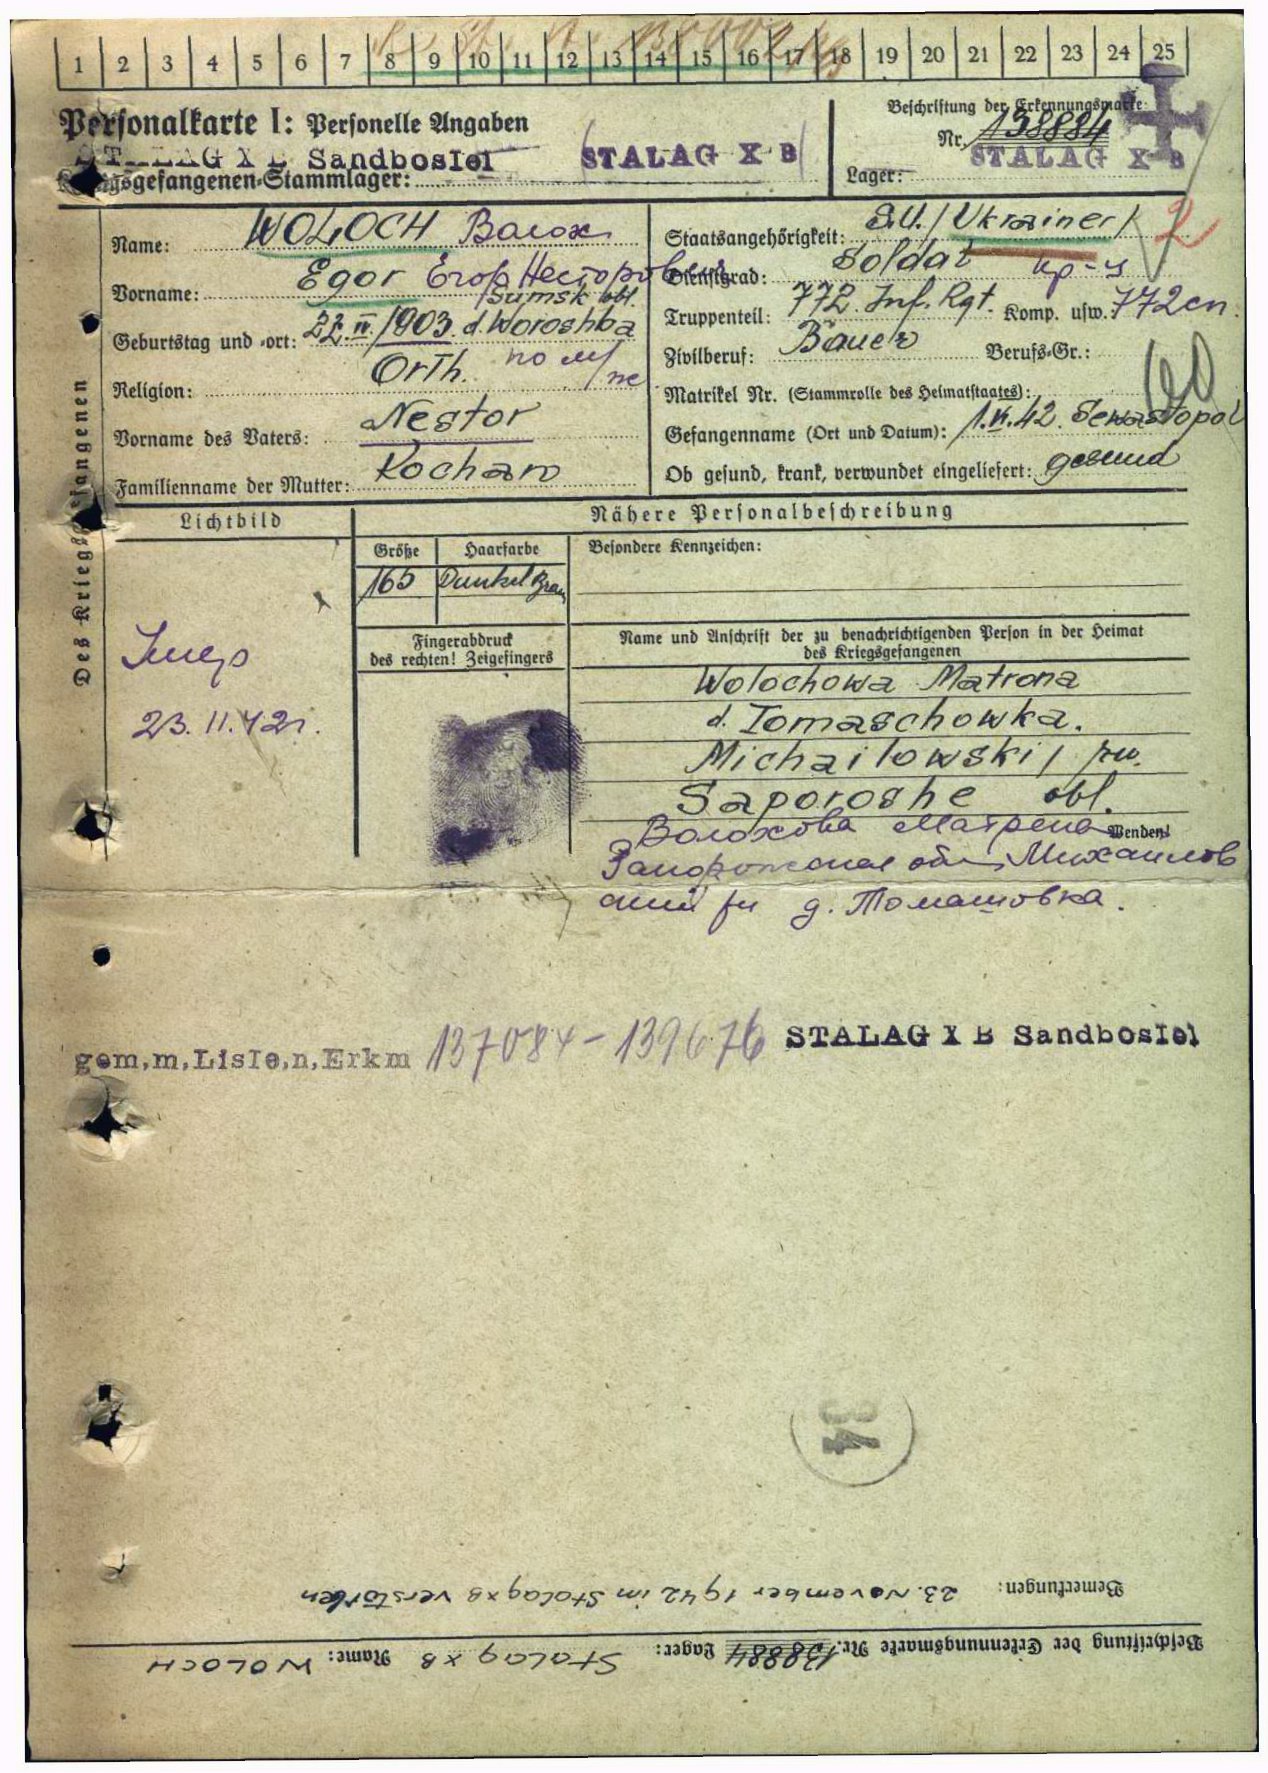 1 2 3 4 5 6 7 8 9 10 11 12 13 14 15 16 17 18 19 20 21 22 23 24 25
Personalkarte I: Personelle Angaben
STALAG X B Sandbostel
STALAG X B
Kriegsgefangenen-Stammlager:
Beschriftung der Erkennungsmarke
Nr. 138884
STALAG X B
Lager:
Des Kriegsgefangenen
Name: WOLOCH Волох
Vorname: Egor Егор Несторович
/Sumsk obl.
Geburtstag und -ort: 22.IV./1903. d. Woroshba
Religion: Orth.
Vorname des Vaters: Nestor
Familienname der Mutter: Kochan
Staatsangehörigkeit: S.U./Ukrainer/ 2
Dienstgrad: Soldat кр-ц
Truppenteil: 772. Inf. Rgt. Komp. usw. 772 сп.
Zivilberuf: Bauer Berufs-Gr.:
Matrikel Nr. (Stammrolle des Heimatstaates):
Gefangenname (Ort und Datum): 1.VI.42. Sewastopol
Ob gesund, krank, verwundet eingeliefert: gesund
Lichtbild
Nähere Personalbeschreibung
Größe Haarfarbe
165 Dunkelbraun
Besondere Kennzeichen:
Fingerabdruck
des rechten! Zeigefingers
Name und Anschrift der zu benachrichtigenden Person in der Heimat
des Kriegsgefangenen
Wolochowa Matrona
d. Tomaschowka.
Michailowski/ rw.
Saporoshe obl.
Волохова Матрена
Wenden!
Запорожская обл Михайлов
ский рн д. Томашовка.
23.11.42г.
gem.m.Liste.n.Erkm 137084-139676 STALAG X B Sandbostel
Bemerkungen: 23. November 1942 im Stalag XB verstorben
Beschriftung der Erkennungsmarke Nr. 138884 Lager: Stalag XB Name: WOLOCH